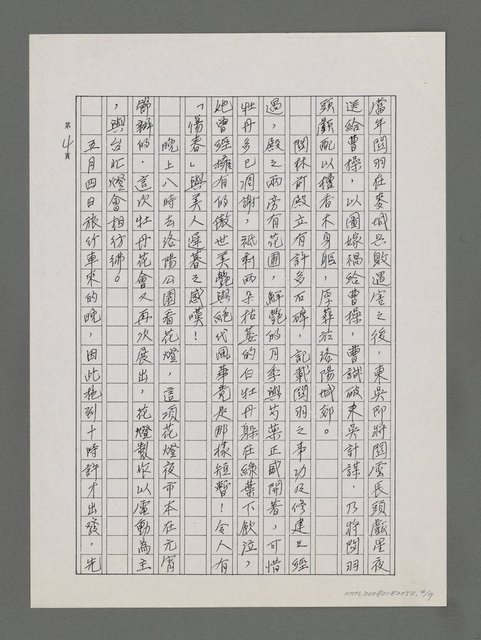 當年關羽在麥城兵敗遇害之後，東吳即將關雲長頭顱星夜
送給曹操，以圖嫁禍給曹操，曹識破東吳計謀，乃將關羽
頭顱配以檀香木身軀，厚葬於洛陽城郊。
關林前殿立有許多石碑，記載關羽之事功及修建之經
過，殿之兩旁有花圃，鮮艷的月季與芍藥正盛開著，可惜
牡丹多已凋謝，祇剩兩朵枯萎的白牡丹躲在綠葉下飲泣，
她曾經擁有的傲世美艷與絕代風華竟是那樣短暫！令人有
「傷春」與美人遲暮之感嘆！
晚上八時去洛陽公園看花燈，這項花燈夜市本在元宵
節辦的，這次牡丹花會又再次展出，花燈製作以電動為主
，與台北燈會相彷彿。
五月四日旅行車來的晚，因此拖到十時許才出發，先
第4頁
NMTL20080182050. 4/9